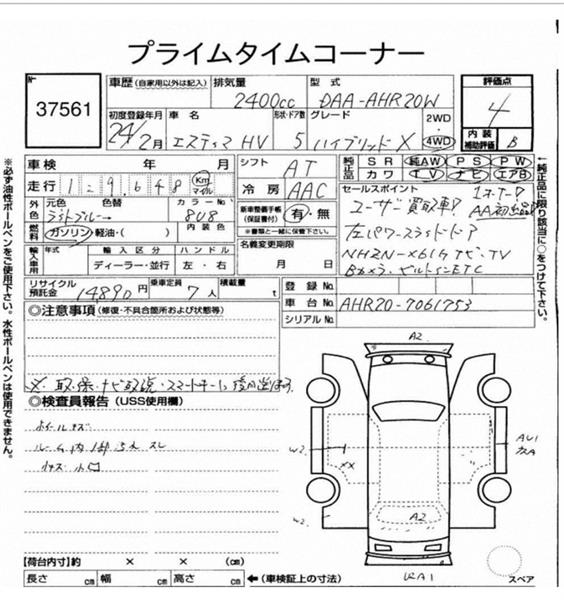 プライムタイムコーナー
No 37561
車歴 (自家用以外は記入) 排気量 型式 評価点
2400cc DAA-AHR20W 4
初度登録年月 車名 形状・ドア数 グレード 2WD 4WD 内装補助評価
24/2月 エスティマHV 5 ハイブリッドX B
車検 年 月 シフト AT 純正品 SR 純AW PS PW
カワ TV ナビ エアB
走行 129,648 Km マイル 冷房 AAC セールスポイント 1オーナー
外色 元色 色替 カラーNo. 新車整備手帳(保証書付) 有・無 ユーザー買取車! AA初出品
ライトブルー 8U8 ※書類と一緒に保管下さい。
燃料 ガソリン・軽油・( ) 内装色 名義変更期限 左パワースライドドア
輸入車用 年式 輸入区分 ハンドル 月 日 NHZN-X61G ナビ・TV
ディーラー・並行 左・右 Bカメラ・ビルトインETC
リサイクル預託金 14890円 乗車定員 7人 積載量 t 登録No.
車台No. AHR20-7061753
◎注意事項 (修復・不具合箇所および状態等) シリアルNo.
※取・保・ナビ取説・スマートキー
◎検査員報告 (USS使用欄)
ホイールキズ
ルーム内
【荷台内寸】約 × × (cm)
長さ cm 幅 cm 高さ cm ←(車検証上の寸法)
A2
W2
XX
W2
AU1
A2
A1
スペア
※必ず油性ボールペンをご使用下さい。水性ボールペンは使用できません。
←純正品に限り該当に○をつけて下さい。